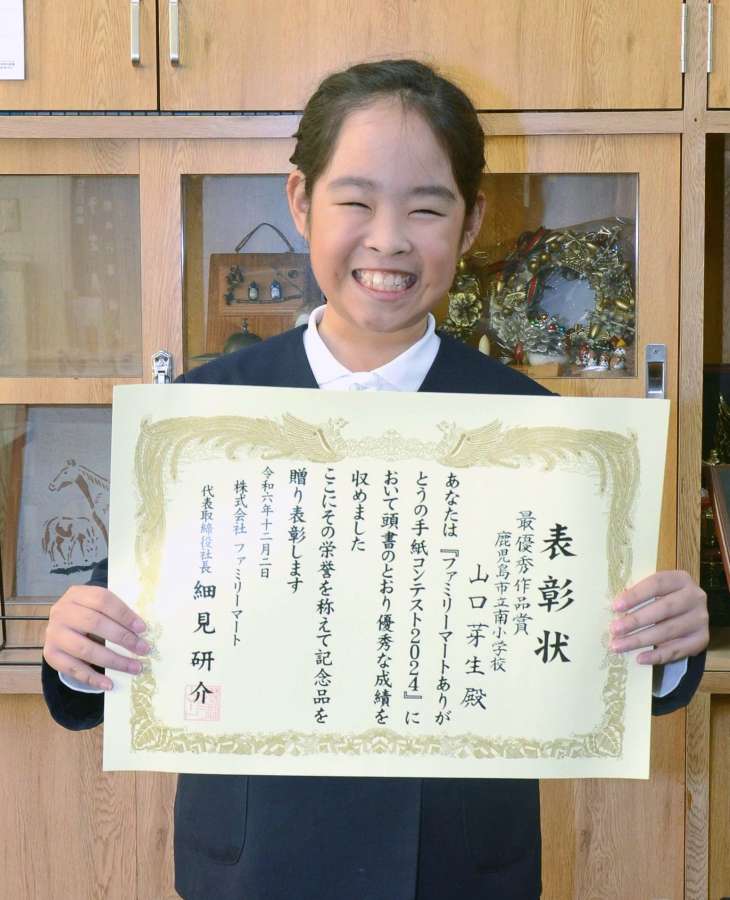 表彰状
最優秀作品賞
鹿児島市立南小学校
山口芽生殿
あなたは『ファミリーマートありが
とうの手紙コンテスト2024』に
おいて頭書のとおり優秀な成績を
収めました
ここにその栄誉を称えて記念品を
贈り表彰します
令和六年十二月二日
株式会社 ファミリーマート
代表取締役社長 細見研介